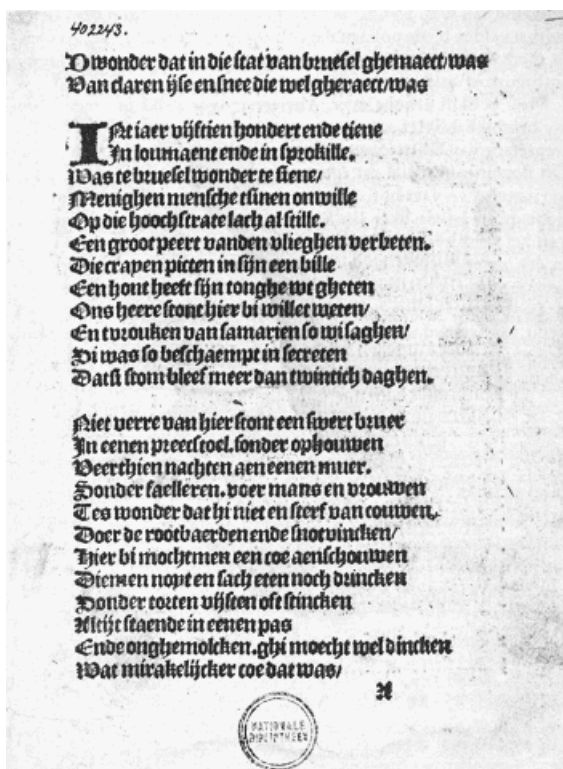 402243.
D wonder dat in die stat van bruesel ghemaect/was
Van claren ijse en snee die wel gheraect/was
INt iaer vijftien hondert ende tiene
In loumaent ende in sprokille.
Was te bruesel wonder te siene/
Menighen mensche tsinen onwille
Op die hoochstrate lach al stille.
Een groot peert vanden vlieghen verbeten.
Die crayen picten in sijn een bille
Een hont heeft sijn tonghe wt gheten
Ons heere stont hier bi willet weten/
En tvrouken van samarien so wi saghen/
Hi was so beschaempt in secreten
Datsi stom bleef meer dan twintich daghen.
Niet verre van hier stont een swert bruer
In eenen preecstoel. sonder ophouwen
Veerthien nachten aen eenen muer.
Sonder faelleren. voer mans en vrouwen
Tes wonder dat hi niet en sterf van couwen.
Doer de rootbaerden ende snotvincken/
Hier bi mochtmen een coe aenschouwen
Diemen noyt en sach eten noch drincken
Sonder torten vijsten oft stincken
Altijt staende in eenen pas
Ende onghemolcken. ghi moecht wel dincken
Wat mirakelijcker coe dat was/
A
NATIONALE
BIBLIOTHEEK